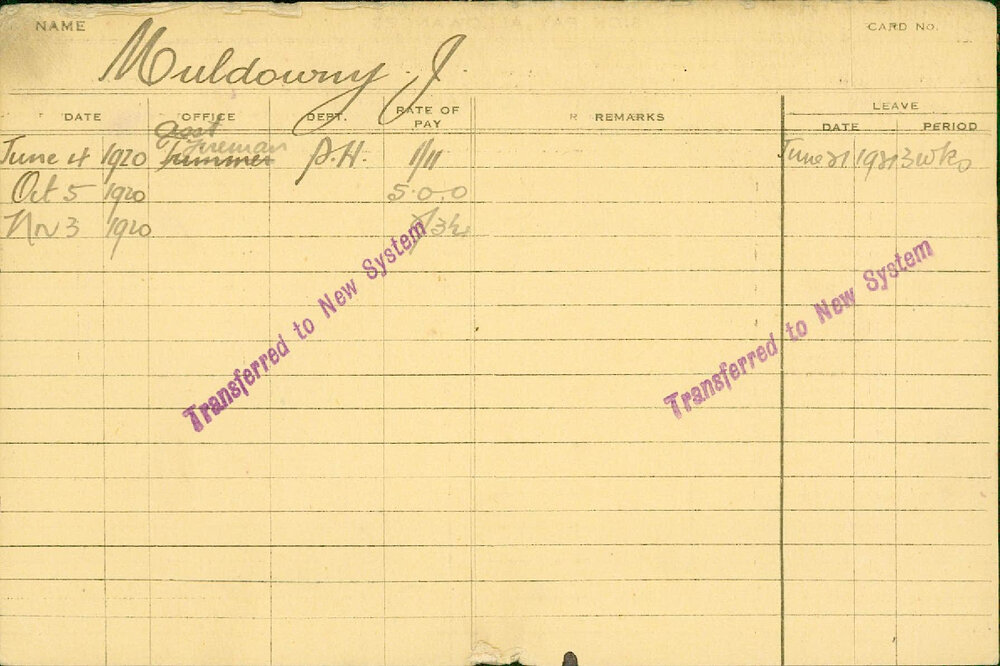 NAME CARD NO.
Muldowny J.
DATE OFFICE DEPT. RATE OF PAY REMARKS LEAVE
DATE PERIOD
Asst Fireman
June 4 1920 Trimmer P.H. 1/11 June 21 1921 3 wks
Oct 5 1920 5.0.0
Nov 3 1920 2/3½
Transferred to New System
Transferred to New System